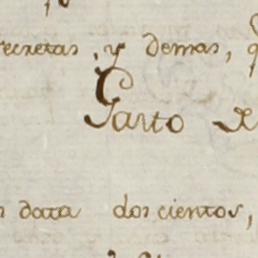 secretas, y demas,
Garto
data dos cientos,